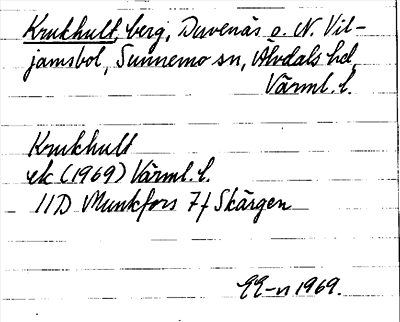 Krukhult, berg, Duvenäs o. N. Vil-
jamsbol, Sunnemo sn, Älvdals hd,
Värml. l.
Krukhult
ek (1969) Värml. l.
11D Munkfors 7f Skärgen
1969.